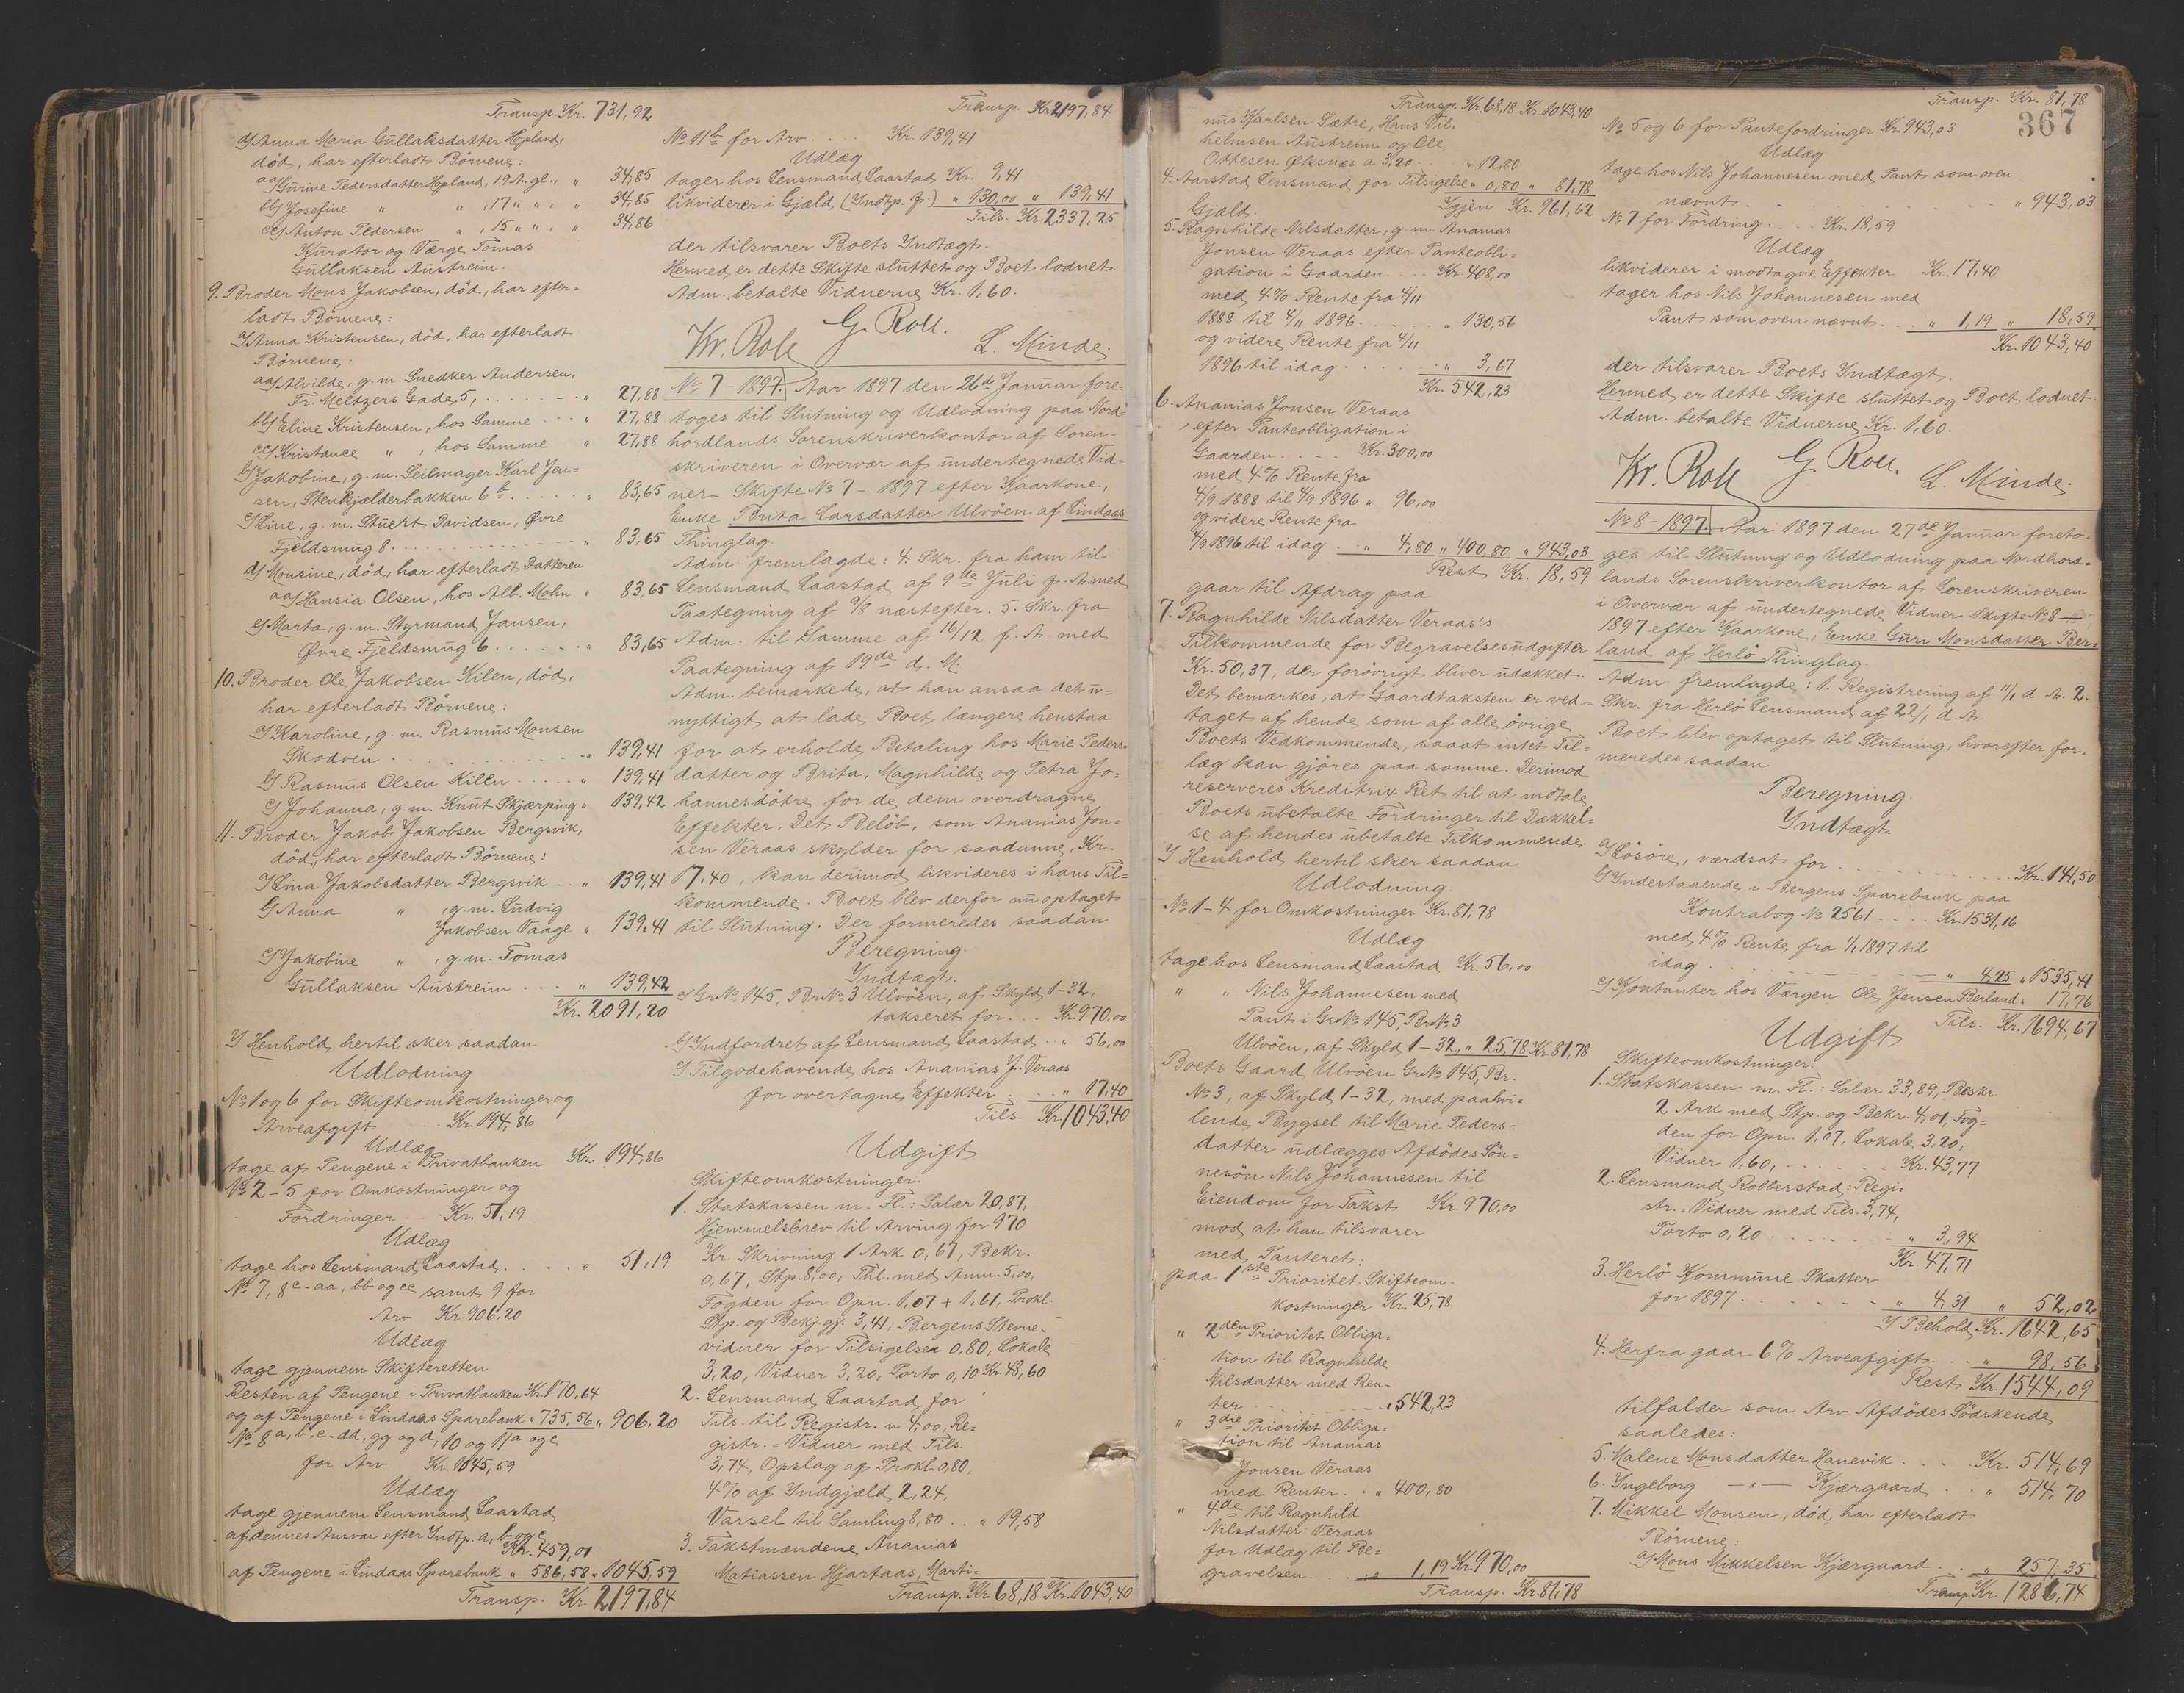 Transp. Kr. 731,92
d) Anna Maria Gullaksdatter Hopland,
död, har efterladt Börnene:
aa) Gurine Pedersdatter Hopland, 19 A. gl., " 34,85
bb) Josefine " " , 17 " " , " 34,85
cc) Anton Pedersen " , 15 " " , " 34,86
Kurator og Værge Tomas
Gullaksen Austreim.
9. Broder Mons Jakobsen, död, har efter=
ladt Börnene:
a) Anna Kristensen, död, har efterladt
Börnene:
aa) Alvilde, g. m. Snedker Andersen,
Fr. Meltzers Gade 5, . . . . . . - " 27,88
bb) Eline Kristensen, hos Samme . . " 27,88
cc) Kristance " , hos Samme " 27,88
b) Jakobine, g. m. Seilmager Karl Jen=
sen, Stenkjælderbakken 6 b. . . . . . " 83,65
c) Line, g. m. Stuert Davidsen, Övre
Fjeldsmug 8. . . . . . . . . . . " 83,65
d) Monsine, död, har efterladt Datteren
aa) Hansia Olsen, hos Alb. Mohn " 83,65
e) Marta, g. m. Styrmand Jansen,
Övre Fjeldsmug 6 . . . . . . . " 83,65
10. Broder Ole Jakobsen Kilen, död,
har efterladt Börnene:
a) Karoline, g. m. Rasmus Monsen
Skodven . . . . . . . . . . . . " 139,41
b) Rasmus Olsen Kilen . . . . . " 139,41
c) Johanna, g. m. Knut Skjærping " 139,42
11. Broder Jakob Jakobsen Bergsvik,
död, har efterladt Börnene:
a) Lina Jakobsdatter Bergsvik . . " 139,41
b) Anna " , g. m. Ludvig
Jakobsen Vaage " 139,41
c) Jakobine " , g. m. Tomas
Gullaksen Austreim . . . " 139,42
Kr. 2091,20
I Henhold hertil sker saadan
Udlodning
No 1 og 6 for Skifteomkostninger og
Arveafgift . . . . Kr. 194,86
Udlæg
tage af Pengene i Privatbanken Kr. 194,86
No 2 - 5 for Omkostninger og
Fordringer . . Kr. 51,19
Udlæg
tage hos Lensmand Laastad . . . . . " 51,19
No 7, 8 c - aa, bb og cc samt 9 for
Arv Kr. 906,20
Udlæg
tage gjennem Skifteretten
Resten af Pengene i Privatbanken Kr. 170,64
og af Pengene i Lindaas Sparebank " 735,56 " 906,20
No 8 a, b, c - dd, gg og d, 10 og 11 a og c
for Arv Kr. 1045,59
Udlæg
tage gjennem Lensmand Laastad
af dennes Ansvar efter Indtp. a, b og c
Kr. 459,01
af Pengene i Lindaas Sparebank " 586,58 " 1045,59
Transp. Kr. 2197,84
Transp. Kr. 2197,84
No 11 b for Arv . . . . Kr. 139,41
Udlæg
tager hos Lensmand Laastad Kr. 9,41
likviderer i Gjæld (Indtp. f.) " 130,00 " 139,41
Tils. Kr. 2337,25
der tilsvarer Boets Indtægt.
Hermed er dette Skifte sluttet og Boet lodnet.
Adm. betalte Vidnerne Kr. 1,60.
Kr. Roll G. Roll. L. Minde.
No 7 - 1897. Aar 1897 den 26de Januar fore=
toges til Slutning og Udlodning paa Nord=
hordlands Sorenskriverkontor af Soren=
skriveren i Overvær af undertegnede Vid=
ner Skifte No 7 - 1897 efter Kaarkone,
Enke Brita Larsdatter Ulvöen af Lindaas
Thinglag.
Adm. fremlagde: 4. Skr. fra ham til
Lensmand Laastad af 9de Juli f. A. med
Paategning af 9/8 næstefter. 5. Skr. fra
Adm. til Samme af 16/12 f. A. med
Paategning af 19de d. M.
Adm. bemærkede, at han ansaa det u=
nyttigt at lade Boet længere henstaa
for at erholde Betaling hos Marie Peders=
datter og Brita, Magnhilde og Petra Jo=
hannesdötre for de dem overdragne
Effekter. Det Belöb, som Ananias Jon=
sen Veraas skylder for saadanne, Kr.
17,40, kan derimod likvideres i hans Til=
kommende. Boet blev derfor nu optaget
til Slutning. Der formeredes saadan
Beregning.
Indtægt.
a) Gr. No 145, Br. No 3 Ulvöen, af Skyld 1-32,
takseret for . . . Kr. 970,00
b) Indfordret af Lensmand Laastad . . " 56,00
c) Tilgodehavende hos Ananias J. Veraas
for overtagne Effekter . . . . " 17,40
Tils. Kr. 1043,40
Udgift
Skifteomkostninger.
1. Statskassen m. Fl.: Salær 20,87,
Hjemmelsbrev til Arving for 970
Kr. Skrivning 1 Ark 0,67, Bekr.
0,67, Stp. 8,00, Thl. med Anm. 5,00,
Fogden for Opn. 1,07 + 1,61, Prokl.
Stp. og Bekj.gj. 3,41, Bergens Stevne=
vidner for Tilsigelsen 0,80, Lokale
3,20, Vidner 3,20, Porto 0,10 Kr. 48,60
2. Lensmand Laastad for
Tils. til Registr. n 4,00, Re=
gistr. - Vidner med Tils.
3,74, Opslag af Prokl. 0,80,
4% af Indgjæld 2,24,
Varsel til Samling 8,80 . . " 19,58
3. Takstmændene Ananias
Matiassen Hjartaas, Marti=
Transp. Kr. 68,18 Kr. 1043,40
Transp. Kr. 68,18 Kr. 1043,40
nus Karlsen Sætre, Hans Vil=
helmsen Austreim og Ole
Ottesen Öksnæs a 3,20 . . . " 12,80
4. Aarstad Lensmand for Tilsigelse " 0,80 " 81,78
Igjen Kr. 961,62
Gjæld.
5. Ragnhilde Nilsdatter, g. m. Ananias
Jonsen Veraas efter Panteobli=
gation i Gaarden . . . Kr. 408,00
med 4% Rente fra 4/11
1888 til 4/11 1896 . . . . . " 130,56
og videre Rente fra 4/11
1896 til idag . . . . . . " 3,67
Kr. 542,23
6. Ananias Jonsen Veraas
efter Panteobligation i
Gaarden . . . . Kr. 300,00
med 4% Rente fra
4/9 1888 til 4/9 1896 " 96,00
og videre Rente fra
4/9 1896 til idag . . " 4,80 " 400,80 " 943,03
Rest Kr. 18,59
gaar til Afdrag paa
7. Ragnhilde Nilsdatter Veraas's
Tilkommende for Begravelsesudgifter
Kr. 50,37, der forövrigt bliver udækket.
Det bemærkes, at Gaardtaksten er ved=
taget af hende som af alle övrige
Boets Vedkommende, saaat intet Til=
læg kan gjöres paa samme. Derimod
reserveres Kreditrix Ret til at indtale
Boets ubetalte Fordringer til Dækkel=
se af hendes ubetalte Tilkommende.
I Henhold hertil sker saadan
Udlodning.
No 1 - 4 for Omkostninger Kr. 81,78
Udlæg
tage hos Lensmand Laastad Kr. 56,00
" " Nils Johannesen med
Pant i Gr. No 145, Br. No 3
Ulvöen, af Skyld 1-32, " 25,78 Kr. 81,78
Boets Gaard Ulvöen Gr. No 145, Br.
No 3, af Skyld 1-32, med paahvi=
lende Bygsel til Marie Peders=
datter udlægges Afdödes Sön=
nesön Nils Johannesen til
Eiendom for Takst Kr. 970,00
mod at han tilsvarer
med Panteret:
paa 1ste Prioritet Skifteom=
kostninger Kr. 25,78
" 2den Prioritet Obliga=
tion til Ragnhilde
Nilsdatter med Ren=
ter . . . . . . . . . " 542,23
" 3die Prioritet Obliga=
tion til Ananias
Jonsen Veraas
med Renter . . " 400,80
" 4de til Ragnhild
Nilsdatter Veraas
for Udlæg til Be=
gravelsen . . . " 1,19 Kr. 970,00
Transp. Kr. 81,78
Transp. Kr. 81,78
367
No 5 og 6 for Pantefordringer Kr. 943,03
Udlæg
tage hos Nils Johannesen med Pant som oven
nævnt . . . . . . . . . . . " 943,03
No 7 for Fordring . . . . Kr. 18,59
Udlæg
likviderer i modtagne Effekter Kr. 17,40
tager hos Nils Johannesen med
Pant som oven nævnt . . . " 1,19 " 18,59
Kr. 1043,40
der tilsvarer Boets Indtægt.
Hermed er dette Skifte sluttet og Boet lodnet.
Adm. betalte Vidnerne Kr. 1,60.
Kr. Roll G. Roll. L. Minde.
No 8 - 1897. Aar 1897 den 27de Januar foreto=
ges til Slutning og Udlodning paa Nordhord=
lands Sorenskriverkontor af Sorenskriveren
i Overvær af undertegnede Vidner Skifte No 8 -
1897 efter Kaarkone, Enke Guri Monsdatter Ber=
land af Herlö Thinglag.
Adm. fremlagde: 1. Registrering af 11/1 d. A. 2.
Skr. fra Herlö Lensmand af 22/1 d. A.
Boet blev optaget til Slutning, hvorefter for=
meredes saadan
Beregning.
Indtægt.
a) Lösöre, værdsat for . . . . . . . . . . . Kr. 141,50
b) Indestaaende i Bergens Sparebank paa
Kontrabog No 2561 . . . . Kr. 1531,16
med 4% Rente fra 1/1 1897 til
idag . . . . . . . . . . " 4,25 " 1535,41
c) Kontanter hos Værgen Ole Jensen Berland " 17,76
Tils. Kr. 1694,67
Udgift
Skifteomkostninger.
1. Statskassen m. Fl.: Salær 33,89, Beskr.
2 Ark med Stp. og Bekr. 4,01, Fog=
den for Opn. 1,07, Lokale 3,20,
Vidner 1,60, . . . . . . . Kr. 43,77
2. Lensmand Robberstad: Regi=
str. - Vidner med Tils. 3,74,
Porto 0,20 . . . . . . . . " 3,94
Kr. 47,71
3. Herlö Kommune Skatter
for 1897 . . . . . . . . " 4,31 " 52,02
I Behold Kr. 1642,65
4. Herfra gaar 6% Arveafgift . . . " 98,56
Rest Kr. 1544,09
tilfalder som Arv Afdödes Södskende
saaledes:
5. Malene Monsdatter Hanevik . . . . Kr. 514,69
6. Ingeborg -"- Kjærgaard . . " 514,70
7. Mikkel Monsen, död, har efterladt
Börnene:
a) Mons Mikkelsen Kjærgaard . . " 257,35
Transp. Kr. 1286,74